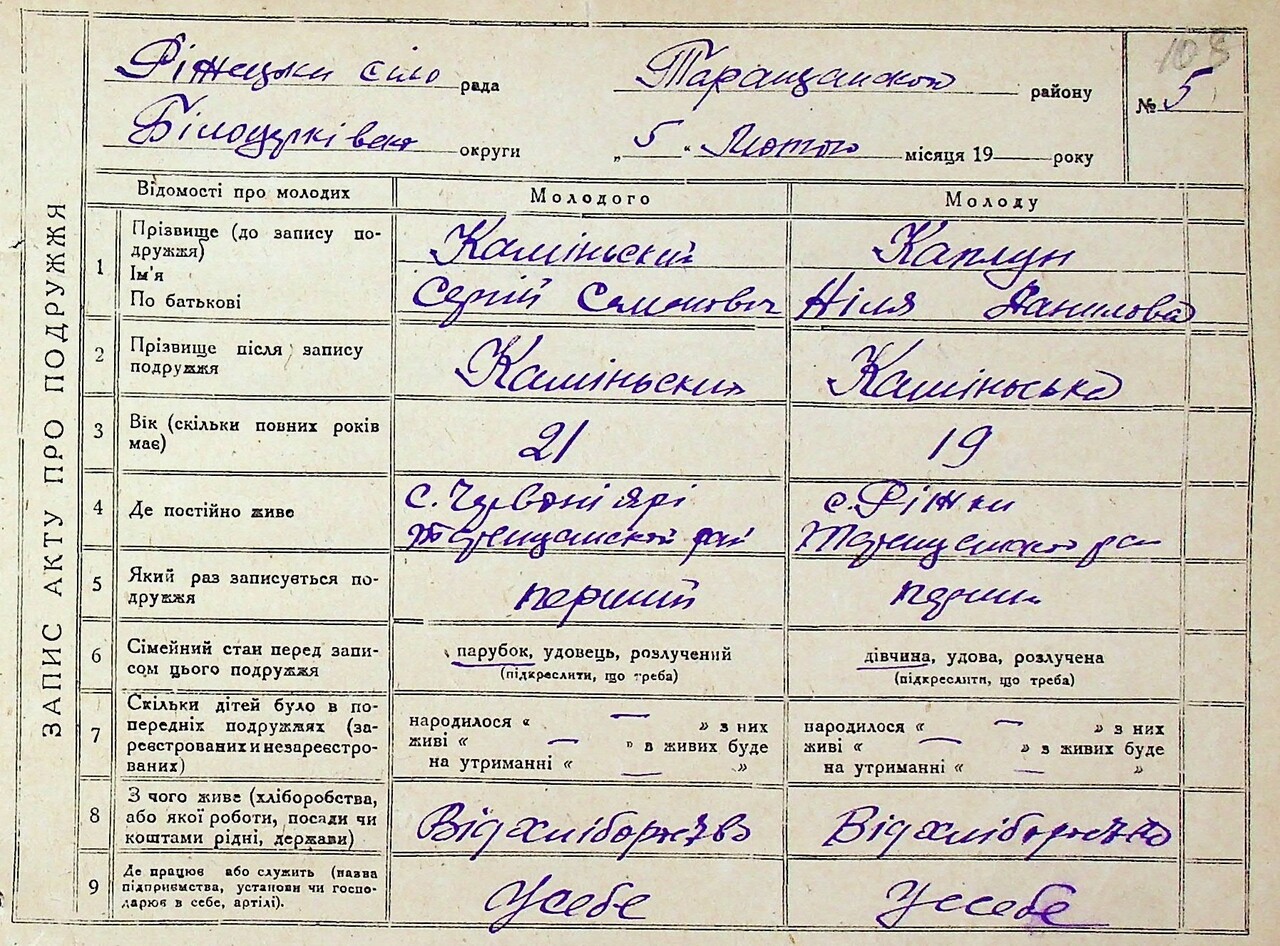 108
Ріжецька сіль рада Таращанского району № 5
Білоцерківськ округи „ 5 " Лютого місяця 19 року
ЗАПИС АКТУ ПРО ПОДРУЖЖЯ
Відомості про молодих Молодого Молоду
1 Прізвище (до запису по-
дружжя)
Ім'я
По батькові
Каміньский Каплун
Сергій Семенович Ніля Данилова
2 Прізвище після запису
подружжя
Каміньский Каміньська
3 Вік (скільки повних років
має)
21 19
4 Де постійно живе
с. Червоні ярі
Таращанской рай
с. Ріжки
Таращанской ра
5 Який раз записується по-
дружжя
перший перши
6 Сімейний стан перед запи-
сом цього подружжя
парубок, удовець, розлучений
(підкреслити, що треба)
дівчина, удова, розлучена
(підкреслити, що треба)
7 Скільки дітей було в по-
передніх подружжях (за-
реєстрованих и незареєстро-
ваних)
народилося « — » з них
живі « — » в живих буде
на утриманні « — »
народилося « — » з них
живі « — » з живих буде
на утриманні « — »
8 З чого живе (хліборобства,
або якої роботи, посади чи
коштами рідні, держави)
Від хліборобтво Від хліборобтво
9 Де працює або служить (назва
підприємства, установи чи госпо-
дарює в себе, артілі).
У себе У себе